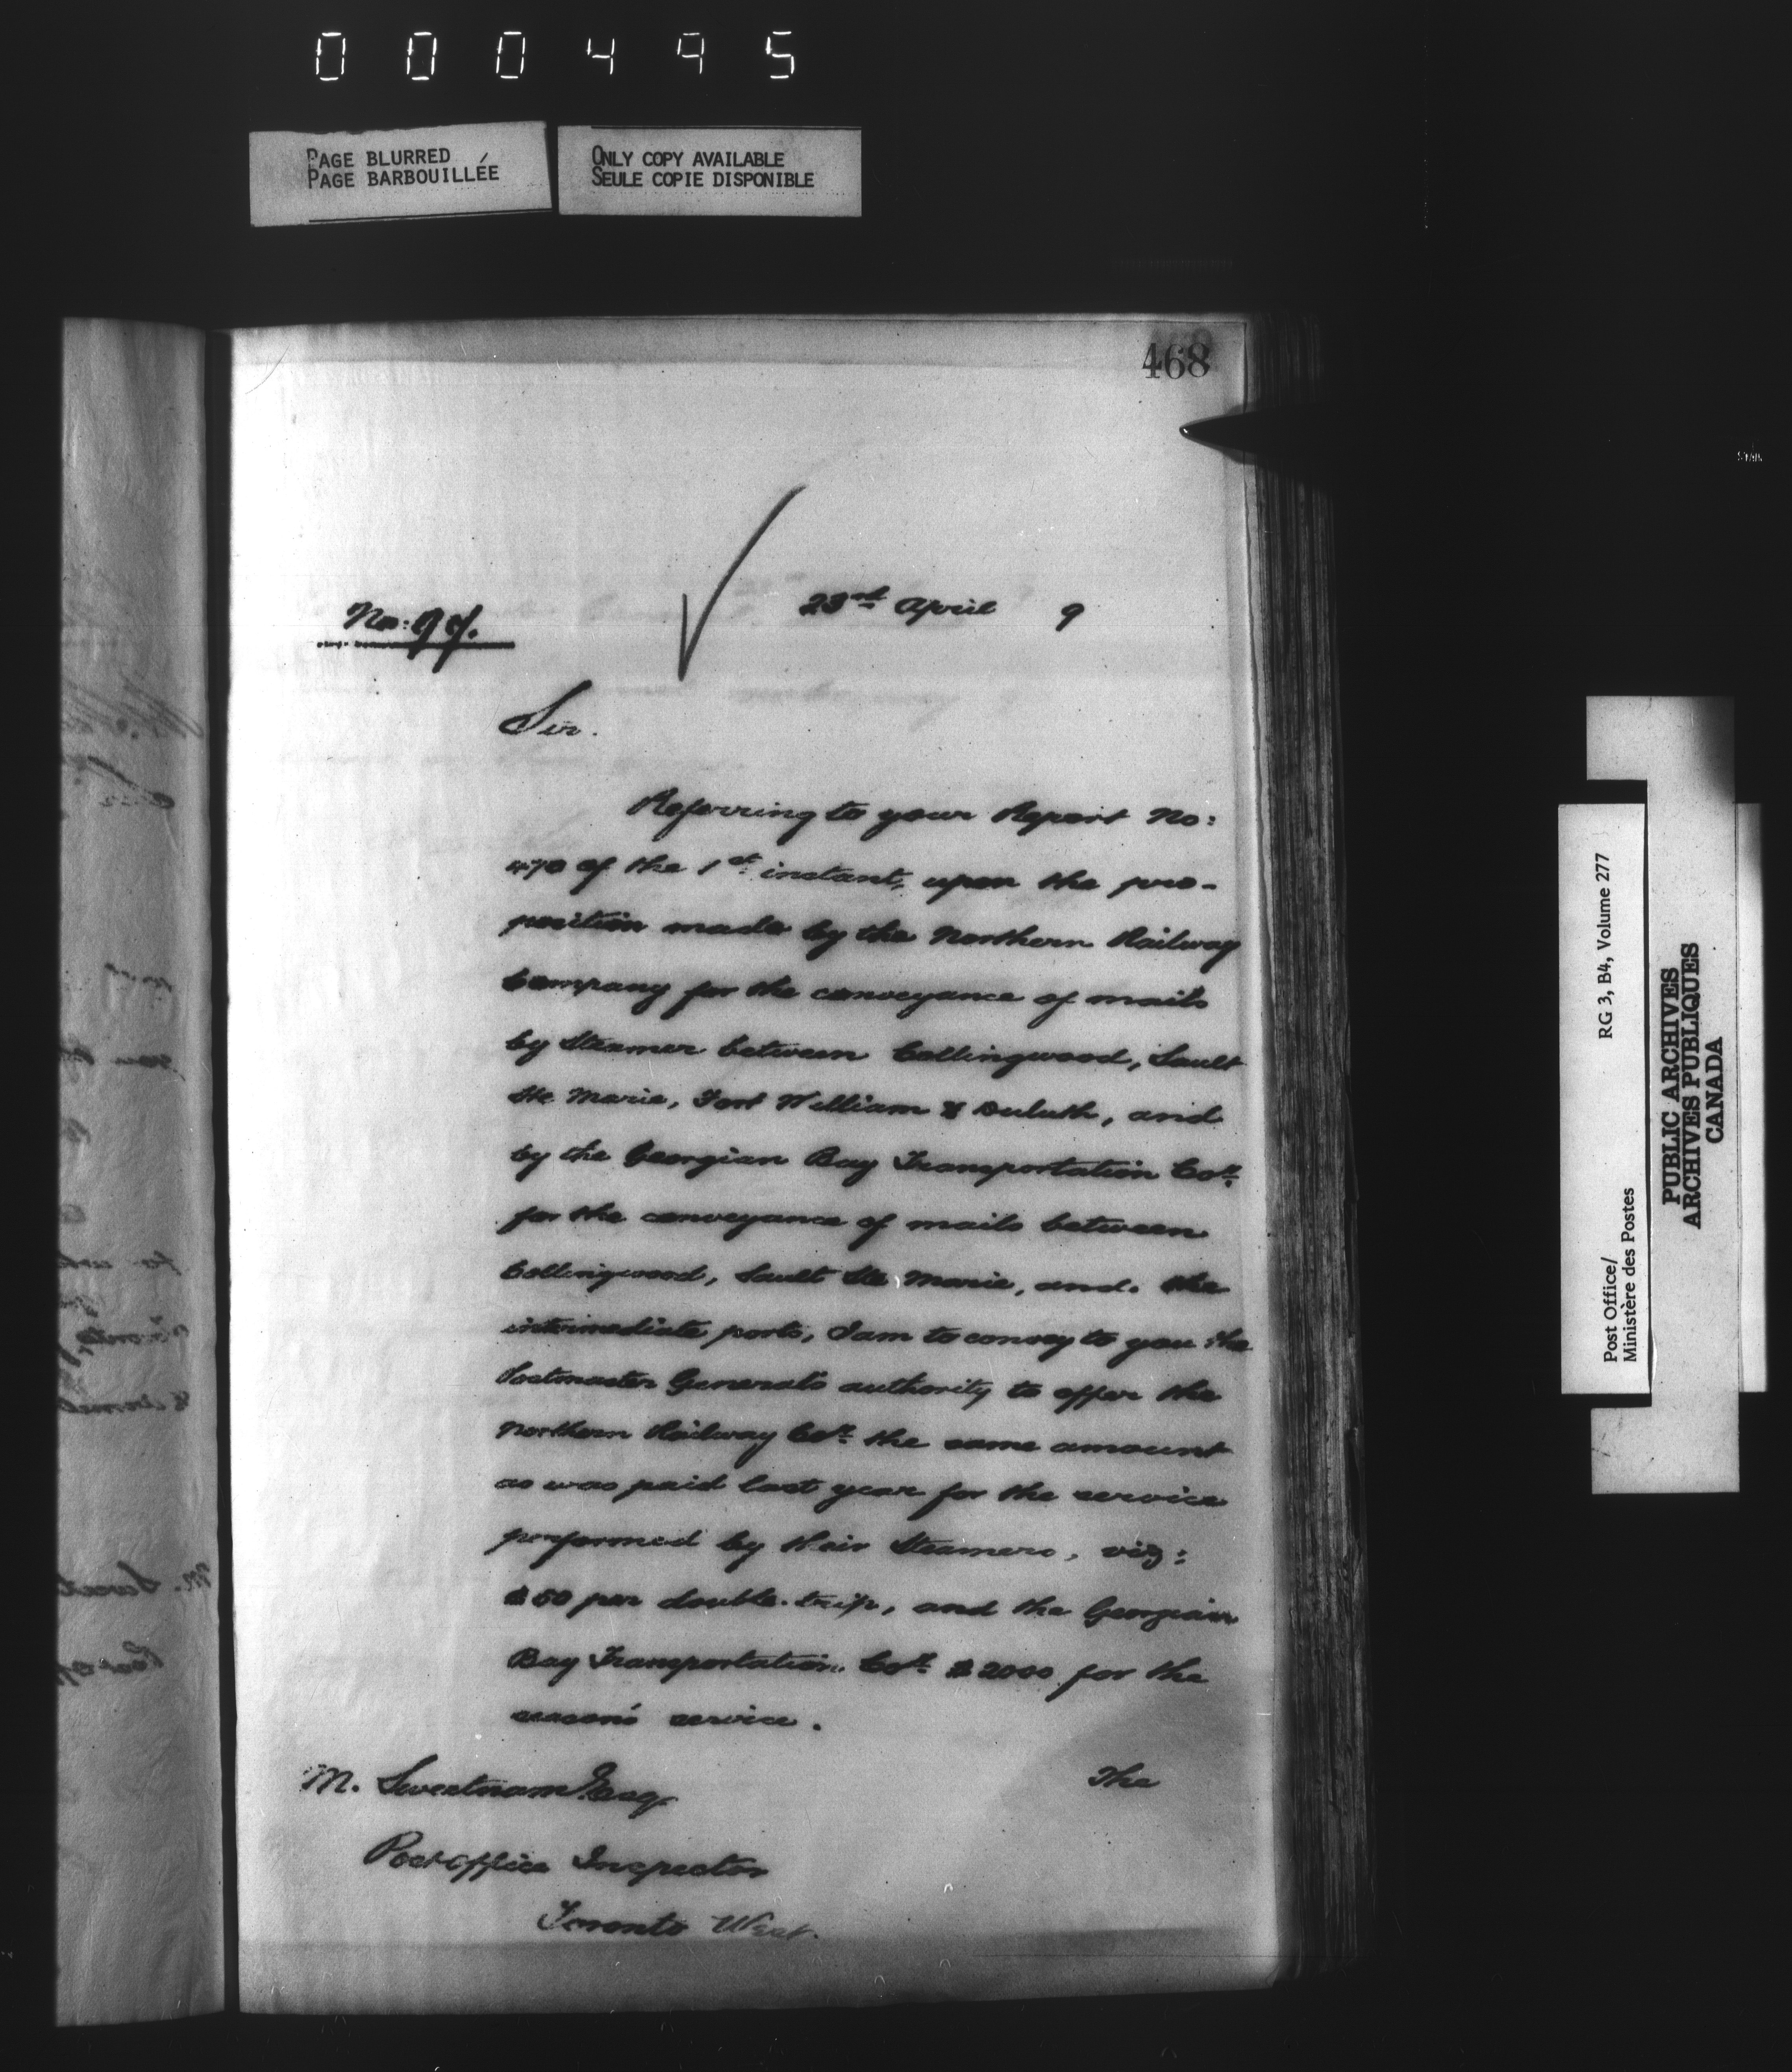 000495
PAGE BLURRED
PAGE BARBOUILLÉE
ONLY COPY AVAILABLE
SEULE COPIE DISPONIBLE
468
No:
23rd April 9
Sir.
Referring to your Report No:
470 of the 1st instant, upon the pro-
position made by the Northern Railway
Company for the conveyance of mails
by Steamer between Collingwood, Sault
Ste Marie, Fort William & Duluth, and
by the Georgian Bay Transportation Coy.
for the conveyance of mails between
Collingwood, Sault Ste Marie, and the
intermediate ports, I am to convey to you the
Postmaster General's authority to offer the
Northern Railway Coy. the same amount
as was paid last year for the service
performed by their Steamers, viz:
$50 per double trip, and the Georgian
Bay Transportation Coy. $2000 for the
season's service.
The
M. Sweetnam Esq.
Post Office Inspector
Toronto West.
Post Office/
Ministère des Postes
RG 3, B4, Volume 277
PUBLIC ARCHIVES
ARCHIVES PUBLIQUES
CANADA